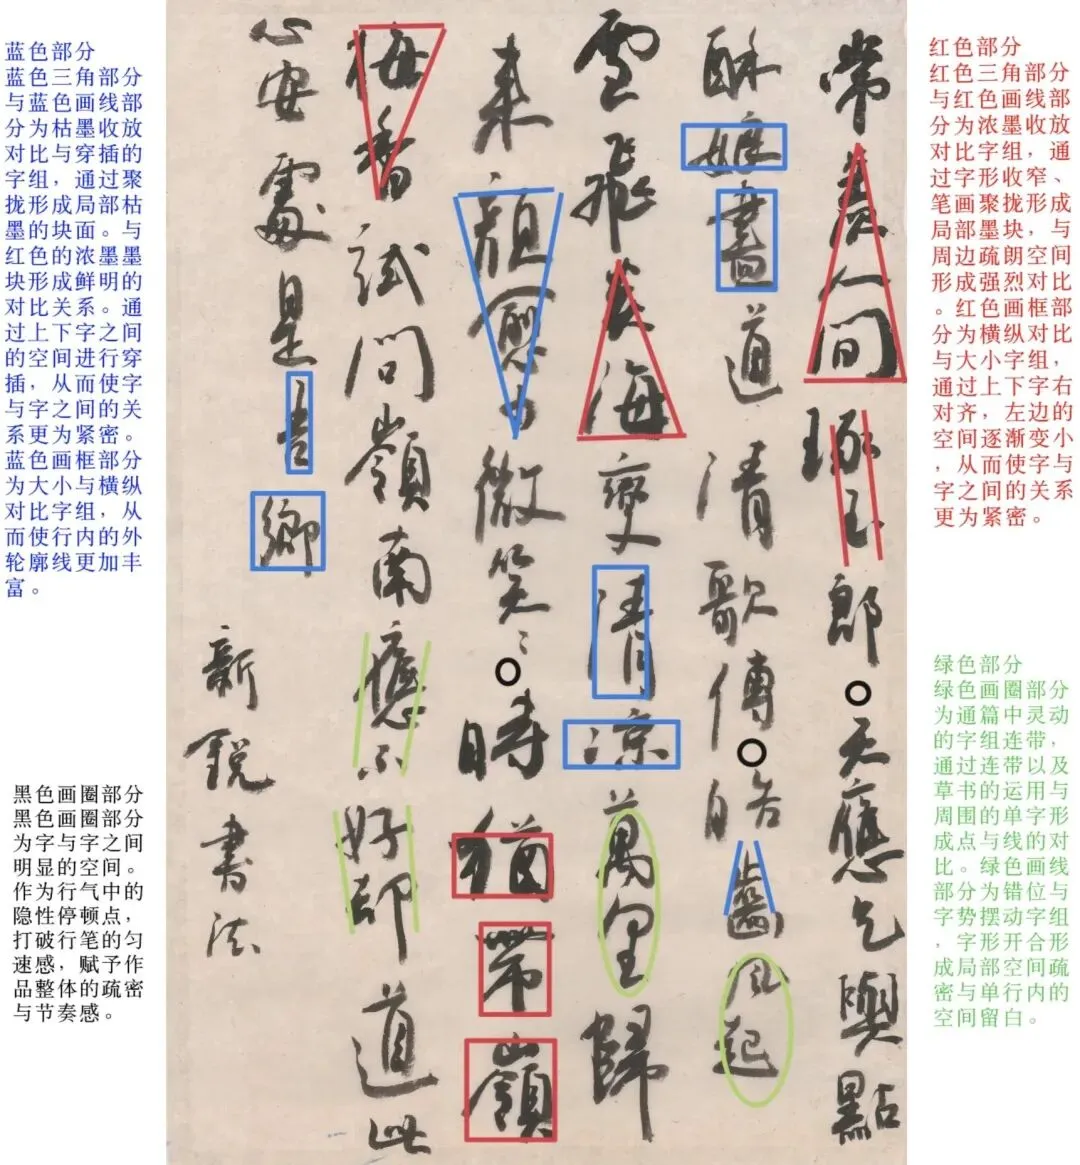 蓝色部分
蓝色三角部分
与蓝色画线部
分为枯墨收放
对比与穿插的
字组，通过聚
拢形成局部枯
墨的块面。与
红色的浓墨墨
块形成鲜明的
对比关系。通
过上下字之间
的空间进行穿
插，从而使字
与字之间的关
系更为紧密。
蓝色画框部分
为大小与横纵
对比字组，从
而使行内的外
轮廓线更加丰
富。
黑色画圈部分
黑色画圈部分
为字与字之间
明显的空间。
作为行气中的
隐性停顿点，
打破行笔的匀
速感，赋予作
品整体的疏密
与节奏感。
常羡人间琢玉郎天應乞與點
酥娘盡道清歌傳皓齒風起
雪飛炎海變清凉萬里歸
来顔愈少微笑〻時猶帶嶺
梅香試問嶺南應不好却道此
心安處是吾鄉
新銳書法
红色部分
红色三角部分
与红色画线部
分为浓墨收放
对比字组，通
过字形收窄、
笔画聚拢形成
局部墨块，与
周边疏朗空间
形成强烈对比
。红色画框部
分为横纵对比
与大小字组，
通过上下字右
对齐，左边的
空间逐渐变小
，从而使字与
字之间的关系
更为紧密。
绿色部分
绿色画圈部分
为通篇中灵动
的字组连带，
通过连带以及
草书的运用与
周围的单字形
成点与线的对
比。绿色画线
部分为错位与
字势摆动字组
，字形开合形
成局部空间疏
密与单行内的
空间留白。